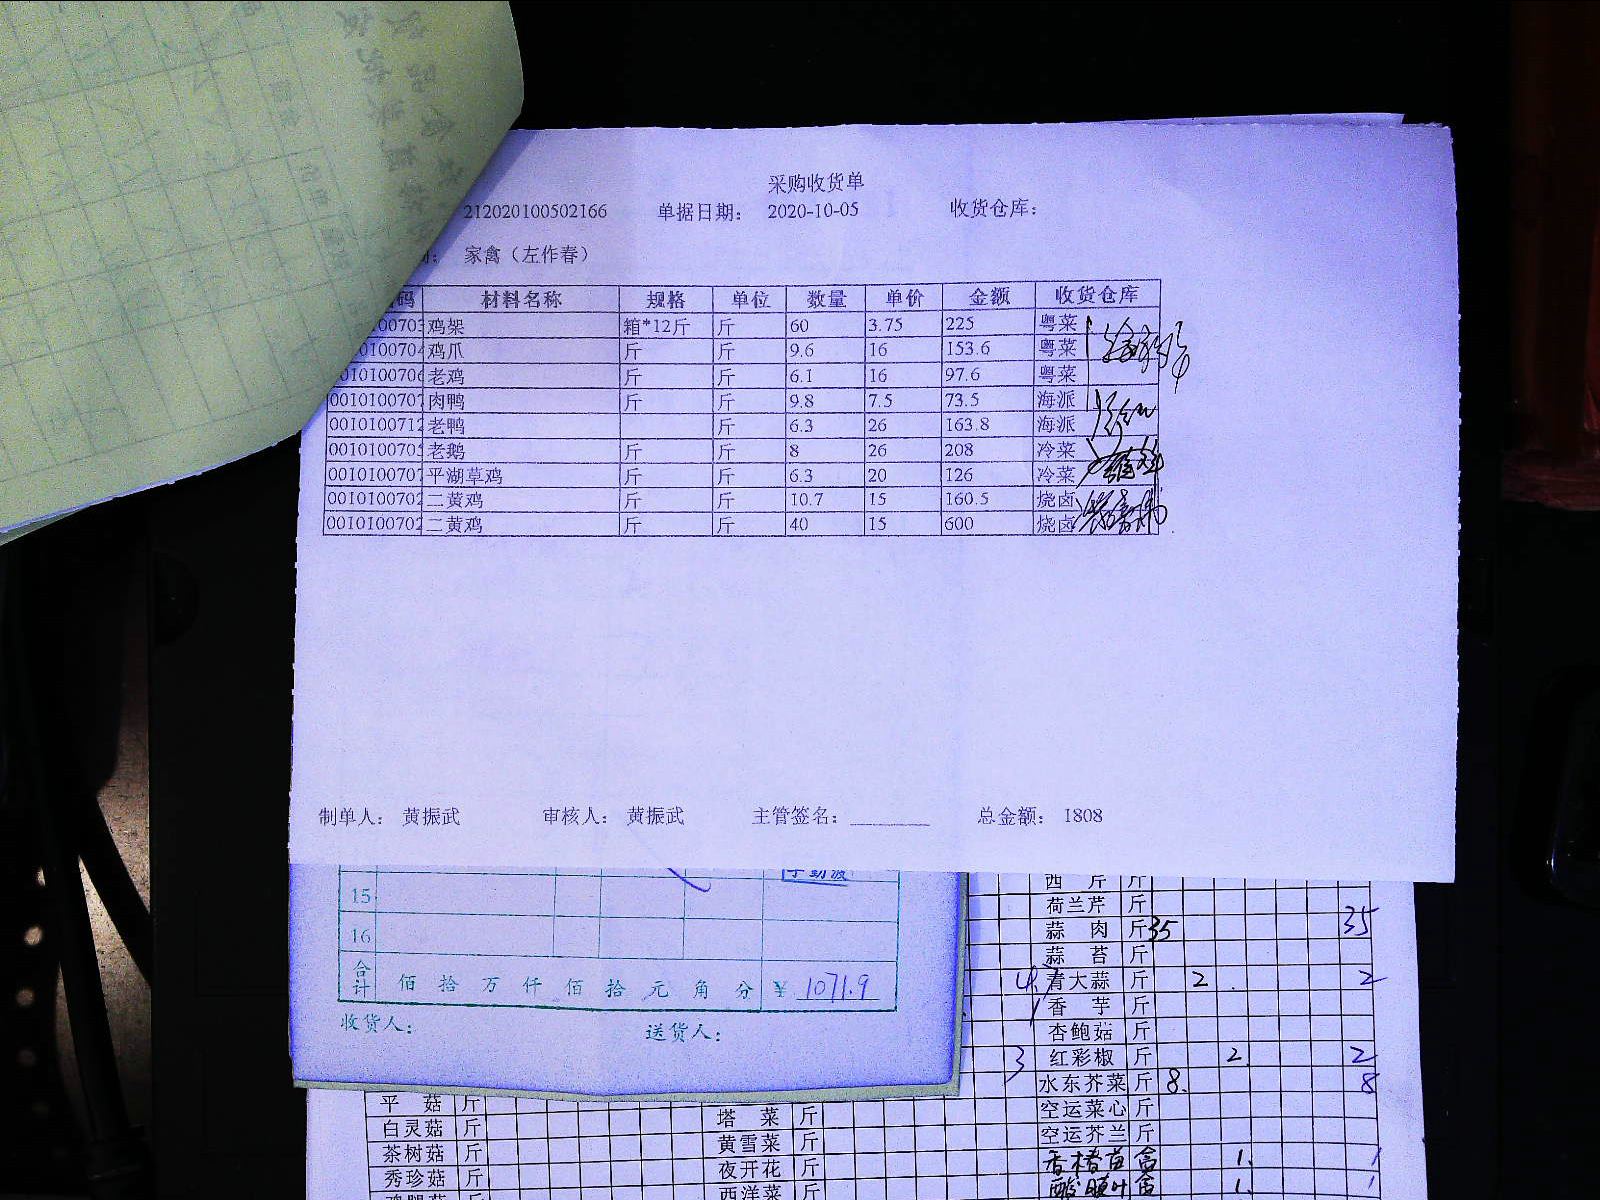 采购收货单
212020100502166 单据日期： 2020-10-05 收货仓库：
家禽（左作春）
码 材料名称 规格 单位 数量 单价 金额 收货仓库
鸡架 箱*12斤 斤 60 3.75 225 粤菜
鸡爪 斤 斤 9.6 16 153.6 粤菜
老鸡 斤 斤 6.1 16 97.6 粤菜
0010100707 肉鸭 斤 斤 9.8 7.5 73.5 海派
0010100712 老鸭 斤 6.3 26 163.8 海派
0010100705 老鹅 斤 斤 8 26 208 冷菜
0010100707 平湖草鸡 斤 斤 6.3 20 126 冷菜
0010100702 二黄鸡 斤 斤 10.7 15 160.5 烧卤
0010100702 二黄鸡 斤 斤 40 15 600 烧卤
制单人： 黄振武 审核人： 黄振武 主管签名： 总金额： 1808
15
16
合计 佰 拾 万 仟 佰 拾 元 角 分 ￥ 1071.9
收货人： 送货人：
西芹 斤
荷兰芹 斤
蒜肉 斤 35 35
蒜苔 斤
青大蒜 斤 2 2
香芋 斤
杏鲍菇 斤
3 红彩椒 斤 2 2
水东芥菜 斤 8 8
空运菜心 斤
空运芥兰 斤
香椿苗 盒 1 1
1 1
平菇 斤 塔菜 斤
白灵菇 斤 黄雪菜 斤
茶树菇 斤 夜开花 斤
秀珍菇 斤 西洋菜 斤